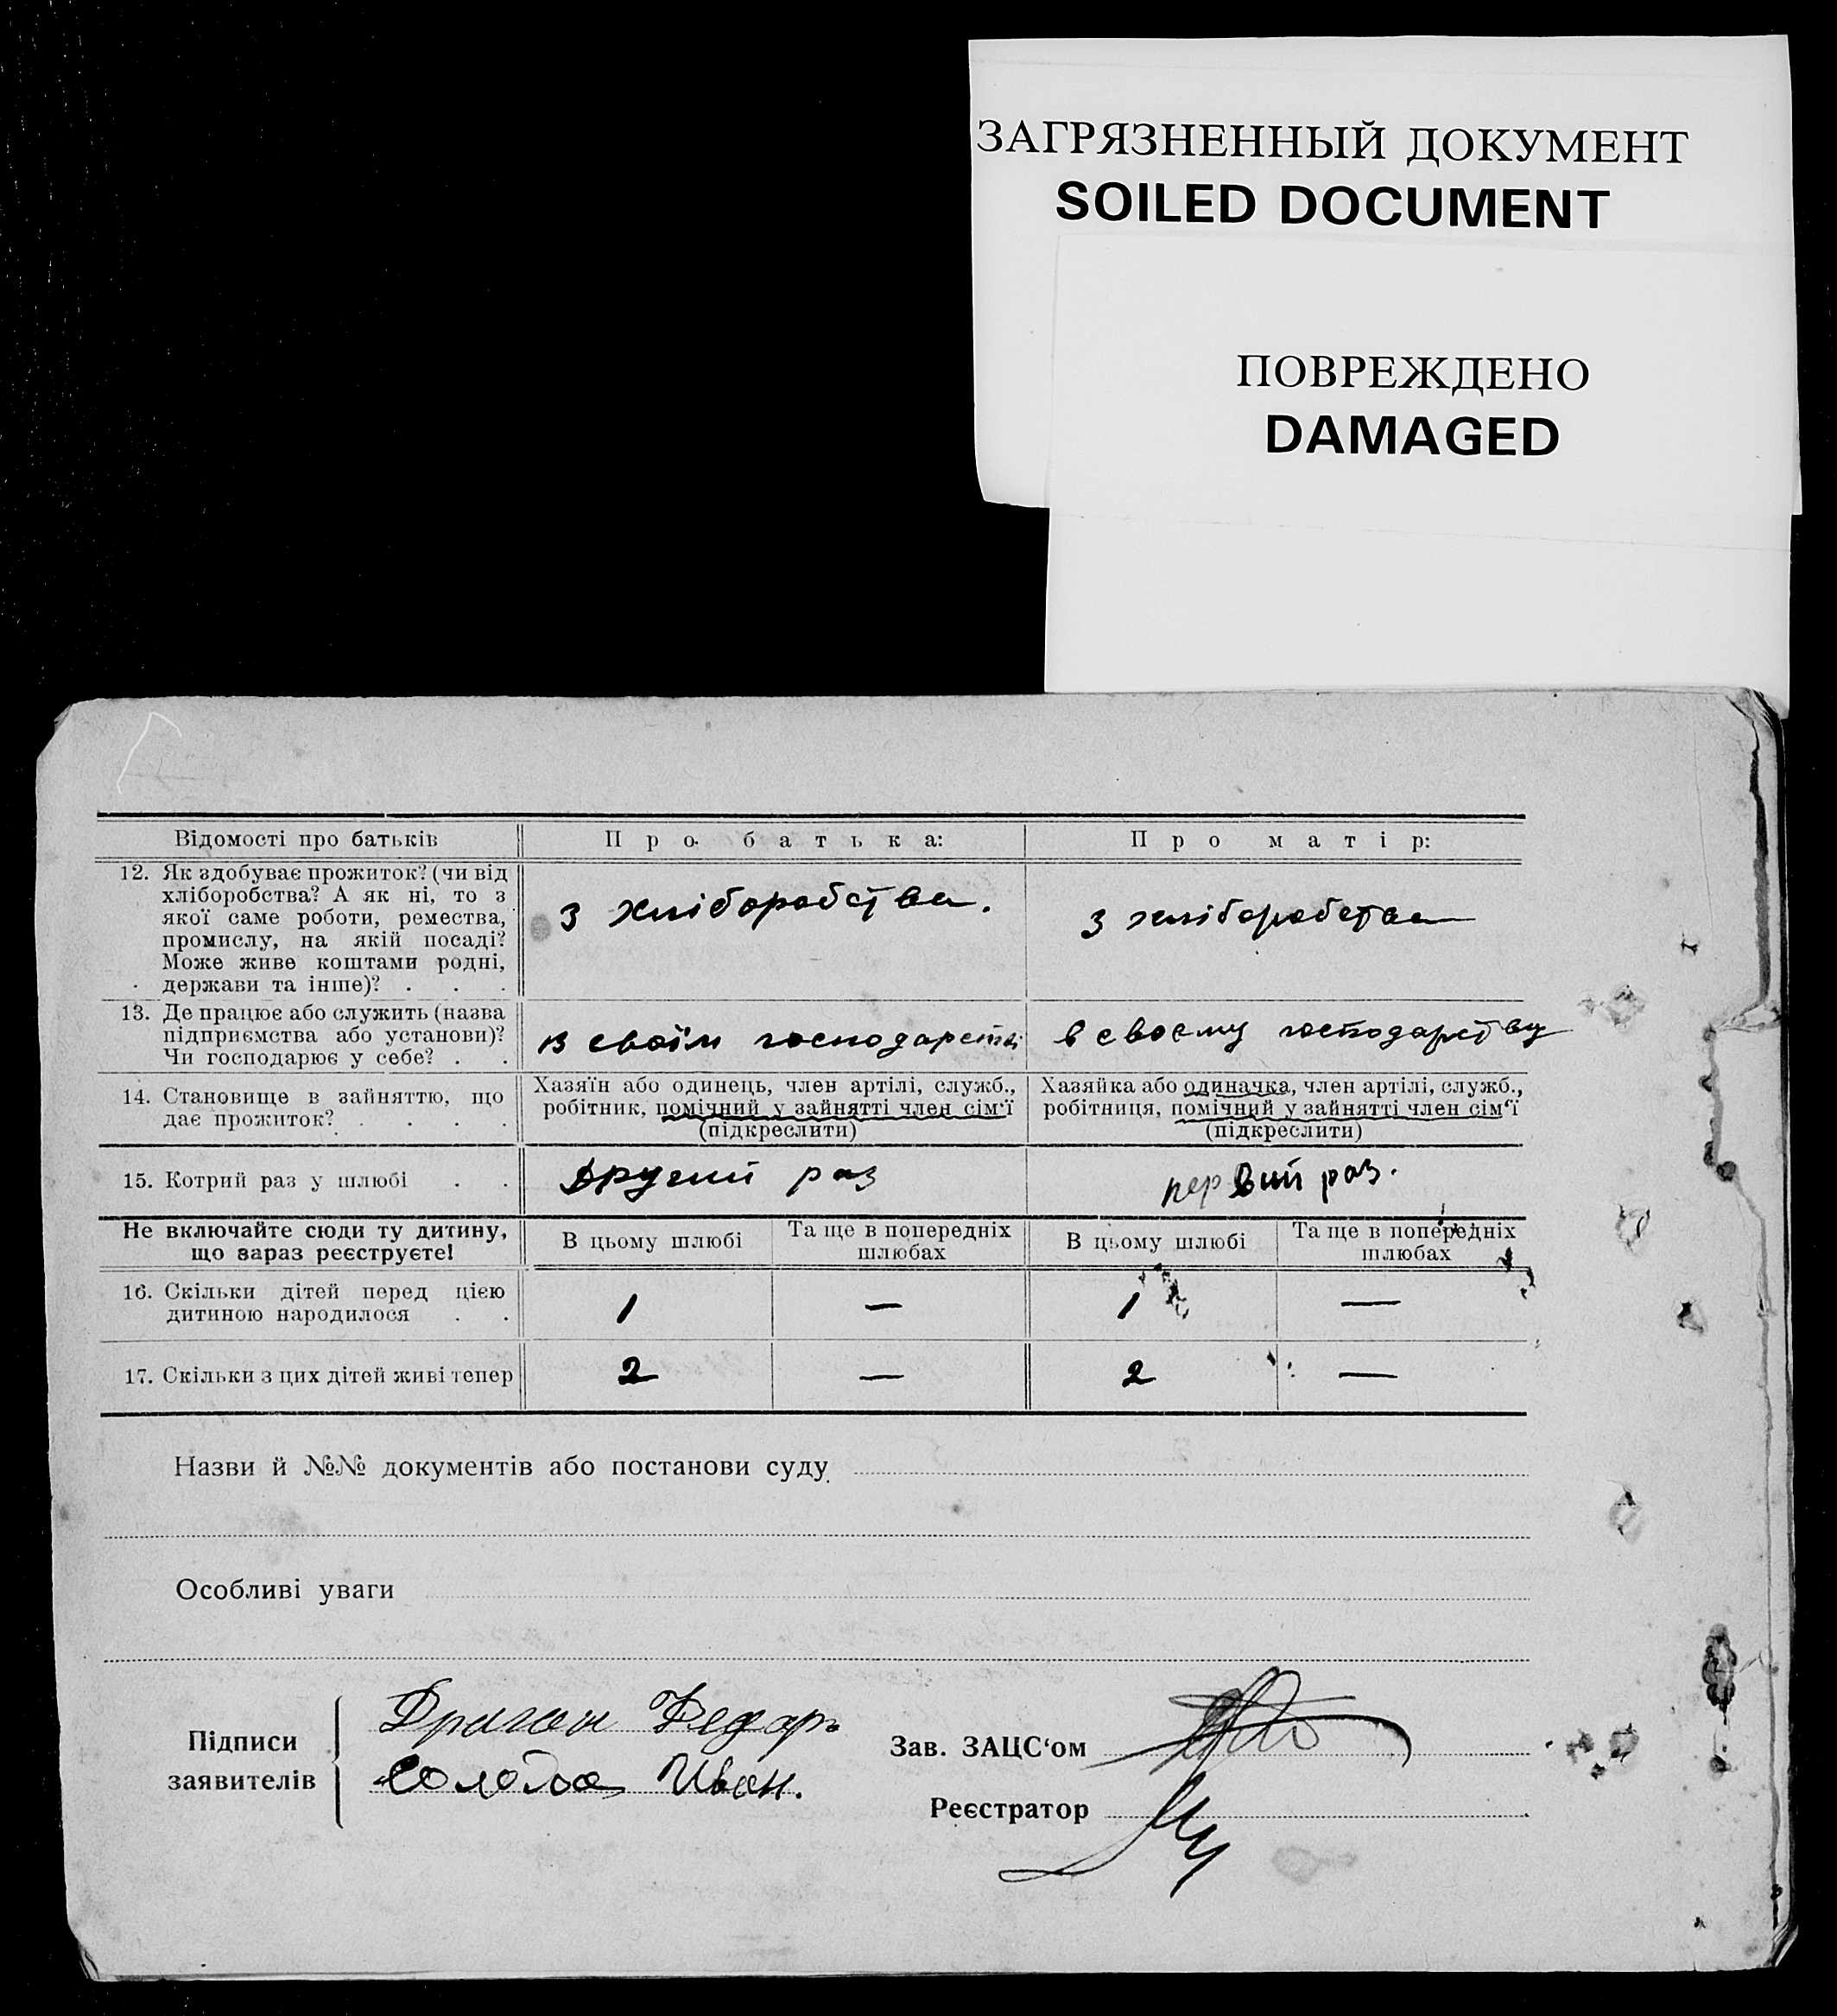 ЗАГРЯЗНЕННЫЙ ДОКУМЕНТ
SOILED DOCUMENT
ПОВРЕЖДЕНО
DAMAGED
Відомості про батьків
Про батька:
Про матір:
12. Як здобуває прожиток? (чи від
хліборобства? А як ні, то з
якої саме роботи, ремества,
промислу, на якій посаді?
Може живе коштами родні,
держави та інше)? . . .
з хліборобства.
з хліборобства
13. Де працює або служить (назва
підприємства або установи)?
Чи господарює у себе? . .
в своїм господарстві
в своєму господарству
14. Становище в зайняттю, що
дає прожиток? . . . .
Хазяїн або одинець, член артілі, служб.,
робітник, помічний у зайнятті член сім'ї
(підкреслити)
Хазяйка або одиначка, член артілі, служб.,
робітниця, помічний у зайнятті член сім'ї
(підкреслити)
15. Котрий раз у шлюбі . .
другий раз
первий раз.
Не включайте сюди ту дитину,
що зараз реєструєте!
В цьому шлюбі
Та ще в попередніх
шлюбах
В цьому шлюбі
Та ще в попередніх
шлюбах
16. Скільки дітей перед цією
дитиною народилося . .
1
—
1
—
17. Скільки з цих дітей живі тепер
2
—
2
—
Назви й №№ документів або постанови суду
Особливі уваги
Підписи
заявителів
Драган Федор
Иван.
Зав. ЗАЦС'ом
Реєстратор